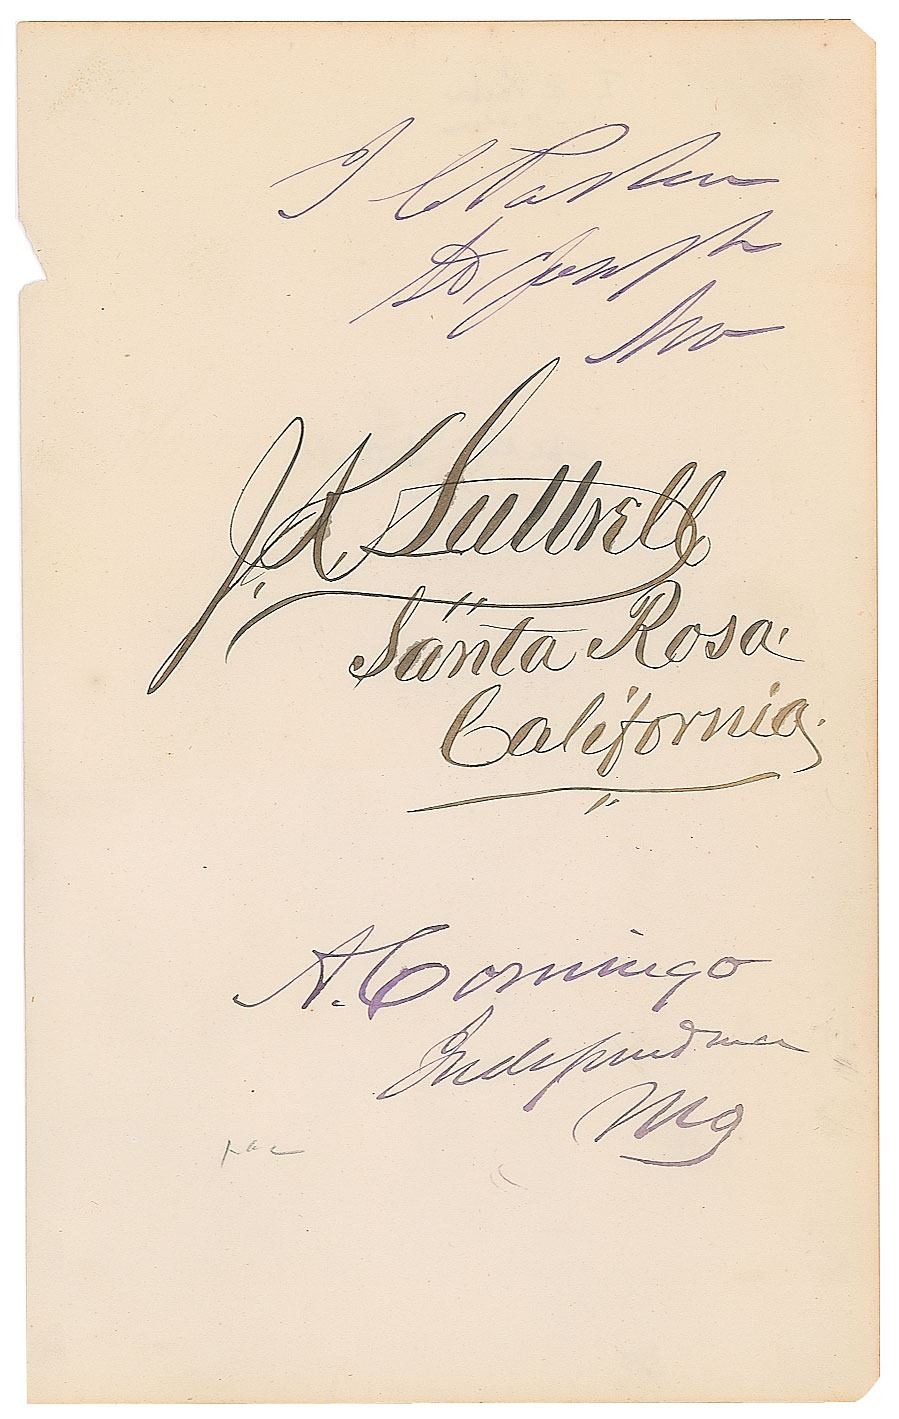 I C Parker
St. Joseph
Mo
J. K. Luttrell
Santa Rosa.
California.
A. Comingo
Independence
Mo